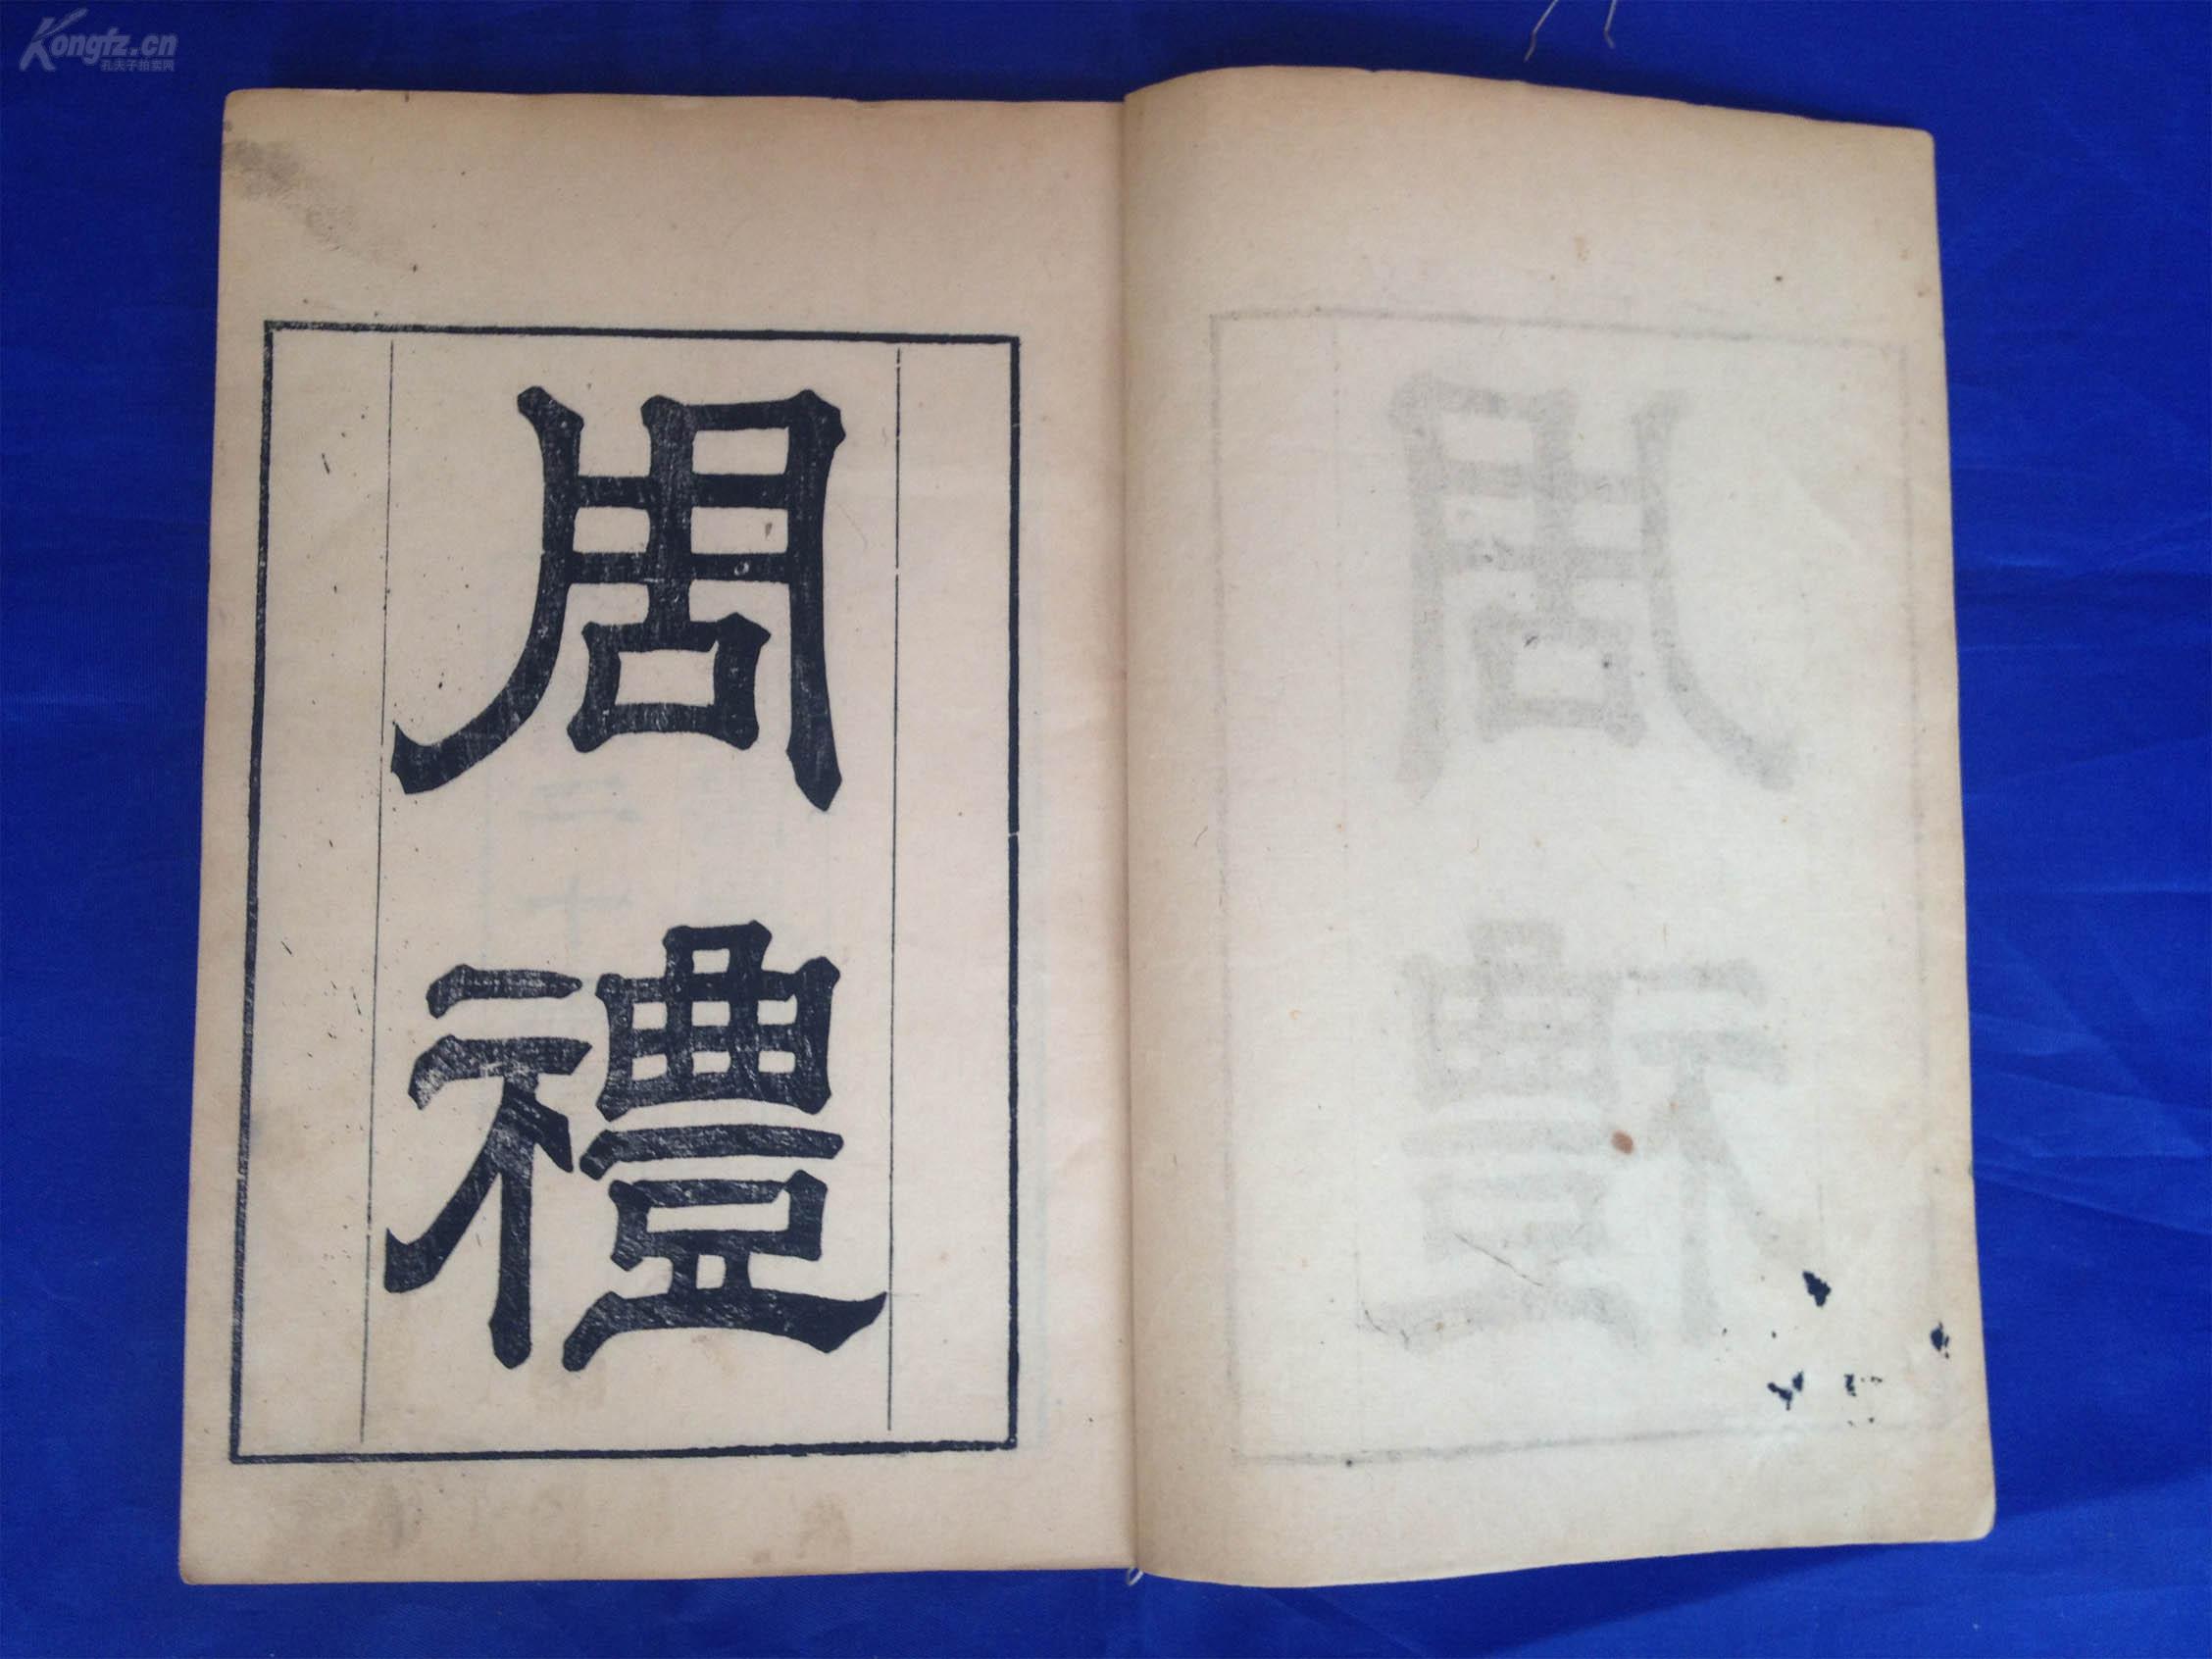 Kongfz.cn
孔夫子拍卖网
周
禮